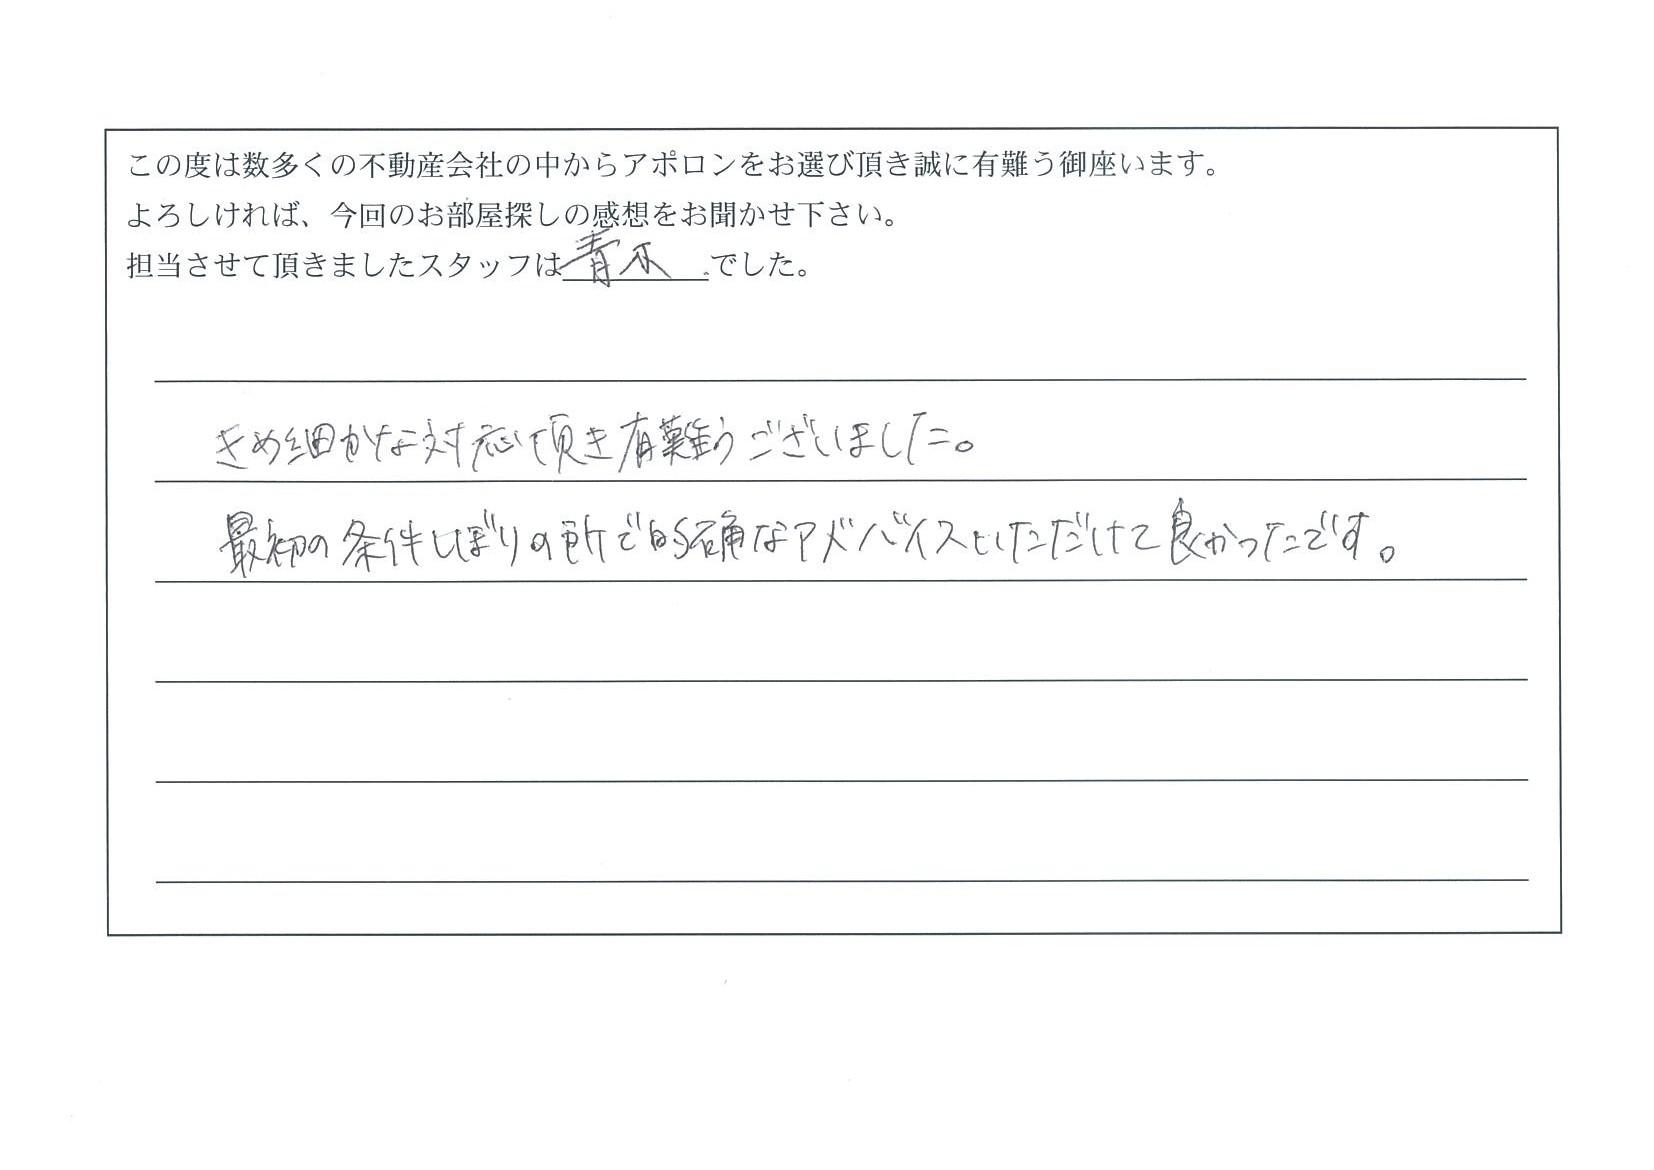 この度は数多くの不動産会社の中からアポロンをお選び頂き誠に有難う御座います。
よろしければ、今回のお部屋探しの感想をお聞かせ下さい。
担当させて頂きましたスタッフは青木でした。
きめ細かな対応頂き有難うございました。
最初の条件しぼりの所で的確なアドバイスいただけて良かったです。